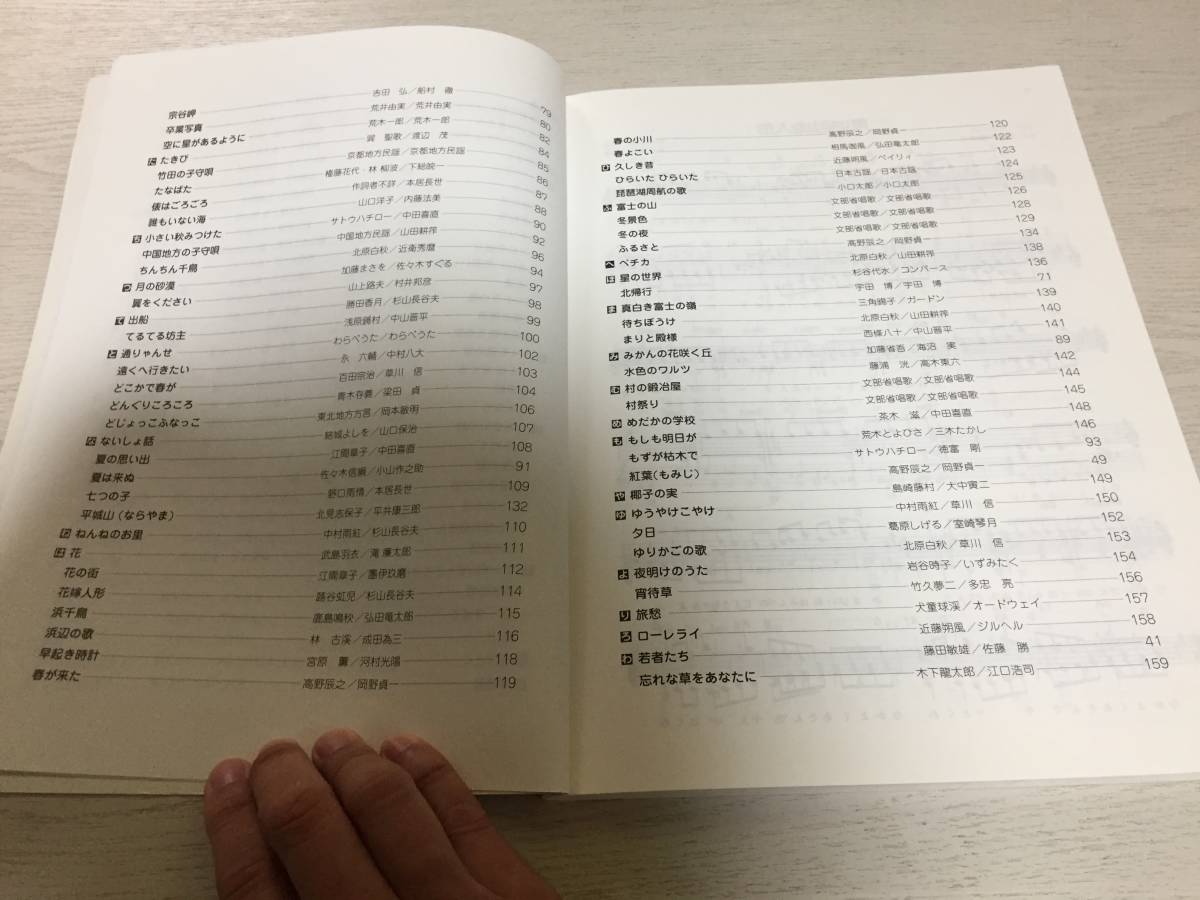 宗谷岬 吉田 弘/船村 徹 79
卒業写真 荒井由実/荒井由実 80
空に星があるように 荒木一郎/荒木一郎 82
た たきび 巽 聖歌/渡辺 茂 84
竹田の子守唄 京都地方民謡/京都地方民謡 85
たなばた 権藤花代・林 柳波/下総皖一 86
俵はごろごろ 作詞者不詳/本居長世 87
誰もいない海 山口洋子/内藤法美 88
ち 小さい秋みつけた サトウハチロー/中田喜直 90
中国地方の子守唄 中国地方民謡/山田耕筰 92
ちんちん千鳥 北原白秋/近衛秀麿 96
つ 月の砂漠 加藤まさを/佐々木すぐる 94
翼をください 山上路夫/村井邦彦 97
て 出船 勝田香月/杉山長谷夫 98
てるてる坊主 浅原鏡村/中山晋平 99
と 通りゃんせ わらべうた/わらべうた 100
遠くへ行きたい 永 六輔/中村八大 102
どこかで春が 百田宗治/草川 信 103
どんぐりころころ 青木存義/梁田 貞 104
どじょっこふなっこ 東北地方方言/岡本敏明 106
な ないしょ話 結城よしを/山口保治 107
夏の思い出 江間章子/中田喜直 108
夏は来ぬ 佐々木信綱/小山作之助 91
七つの子 野口雨情/本居長世 109
平城山(ならやま) 北見志保子/平井康三郎 132
ね ねんねのお里 中村雨紅/杉山長谷夫 110
は 花 武島羽衣/滝 廉太郎 111
花の街 江間章子/團伊玖磨 112
花嫁人形 蕗谷虹児/杉山長谷夫 114
浜千鳥 鹿島鳴秋/弘田竜太郎 115
浜辺の歌 林 古溪/成田為三 116
早起き時計 宮原 薫/河村光陽 118
春が来た 高野辰之/岡野貞一 119
春の小川 高野辰之/岡野貞一 120
春よこい 相馬御風/弘田竜太郎 122
ひ 久しき昔 近藤朔風/ベイリィ 123
ひらいた ひらいた 日本古謡/日本古謡 124
琵琶湖周航の歌 小口太郎/小口太郎 125
ふ 富士の山 文部省唱歌/文部省唱歌 126
冬景色 文部省唱歌/文部省唱歌 128
冬の夜 文部省唱歌/文部省唱歌 129
ふるさと 高野辰之/岡野貞一 134
へ ペチカ 北原白秋/山田耕筰 138
ほ 星の世界 杉谷代水/コンバース 136
北帰行 宇田 博/宇田 博 71
ま 真白き富士の嶺 三角錫子/ガードン 139
待ちぼうけ 北原白秋/山田耕筰 140
まりと殿様 西條八十/中山晋平 141
み みかんの花咲く丘 加藤省吾/海沼 実 89
水色のワルツ 藤浦 洸/高木東六 142
む 村の鍛冶屋 文部省唱歌/文部省唱歌 144
村祭り 文部省唱歌/文部省唱歌 145
め めだかの学校 茶木 滋/中田喜直 148
も もしも明日が 荒木とよひさ/三木たかし 146
もずが枯木で サトウハチロー/徳富 剛 93
紅葉(もみじ) 高野辰之/岡野貞一 49
や 椰子の実 島崎藤村/大中寅二 149
ゆ ゆうやけこやけ 中村雨紅/草川 信 150
夕日 葛原しげる/室崎琴月 152
ゆりかごの歌 北原白秋/草川 信 153
よ 夜明けのうた 岩谷時子/いずみたく 154
宵待草 竹久夢二/多忠 亮 156
り 旅愁 犬童球渓/オードウェイ 157
ろ ローレライ 近藤朔風/ジルヘル 158
わ 若者たち 藤田敏雄/佐藤 勝 41
忘れな草をあなたに 木下龍太郎/江口浩司 159